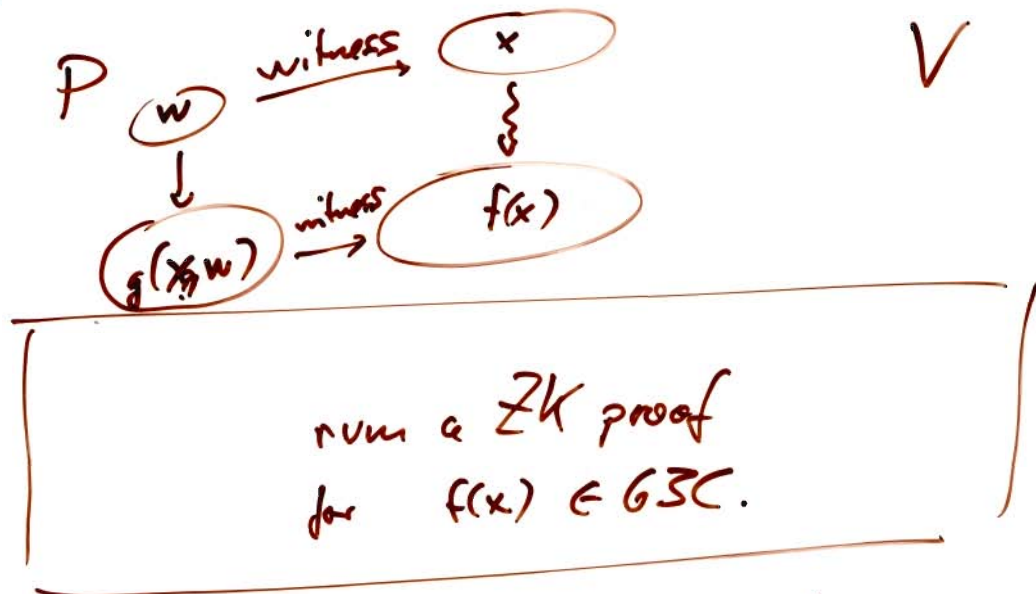 P witness x V
w
witness f(x)
g(x, w)
run a ZK proof
for f(x) ∈ G3C.